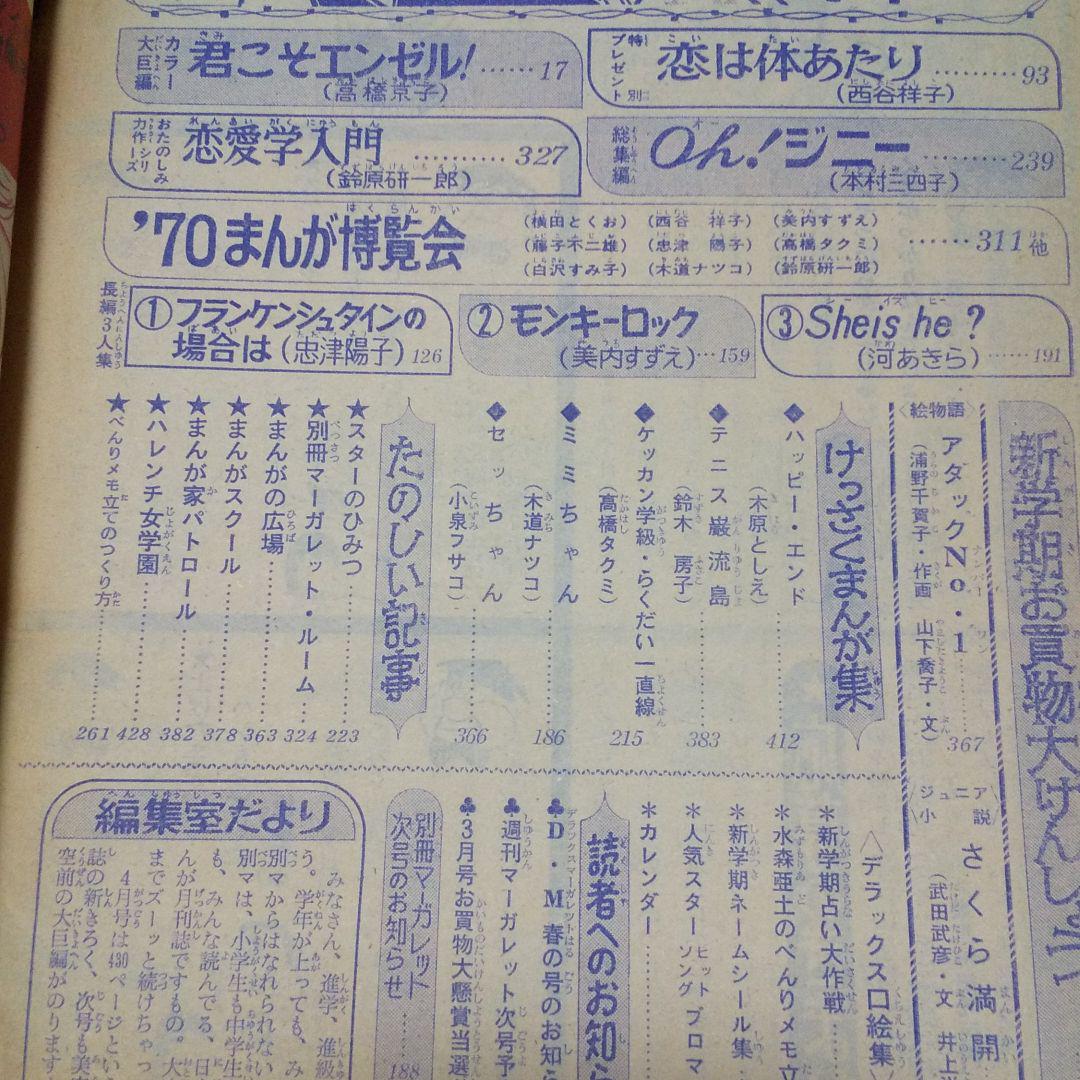 カラー大巨編
君こそエンゼル!……17
(高橋京子)
特別プレゼント
恋は体あたり………93
(西谷祥子)
おたのしみ力作シリーズ
恋愛学入門………327
(鈴原研一郎)
総集編
Oh!ジニー………239
(本村三四子)
'70まんが博覧会
(横田とくお)(西谷 祥子)(美内すずえ)
(藤子不二雄)(忠津 陽子)(高橋タクミ)……311他
(白沢すみ子)(木道ナツコ)(鈴原研一郎)
長編3人集
①フランケンシュタインの
場合は(忠津陽子)126
②モンキーロック
(美内すずえ)…159
③She is he?
(河あきら)……191
新学期お買物大けんしょう
〈絵物語〉
アタックNo.1
(浦野千賀子・作画 山下喬子・文)367
ジュニア小説
さくら満開
(武田武彦・文 井上
けっさくまんが集
◆ハッピー・エンド
(木原としえ)……412
◆テニス巌流島
(鈴木 房子)……383
◆ケッカン学級・らくだい一直線
(高橋タクミ)……215
◆ミミちゃん
(木道ナツコ)……186
◆セッちゃん
(小泉フサコ)……366
たのしい記事
★スターのひみつ……223
★別冊マーガレット・ルーム……324
★まんがの広場……363
★まんがスクール……378
★まんが家パトロール……382
★ハレンチ女学園……428
★べんりメモ立てのつくり方……261
デラックス口絵集
*新学期占い大作戦
*水森亜土のべんりメモ立
*新学期ネームシール集
*人気スター ヒットソング ブロマ
*カレンダー
読者へのお知ら
♣D・M春の号のお知ら
♣週刊マーガレット次号予
♣3月号お買物大懸賞当選
別冊マーガレット
次号のお知らせ……188
編集室だより
みなさん、進学、進級
う。学年が上っても、み
別マからはなれられない
別マは、小学生も中学生
も、みんな読んでる、日
んが月刊誌ですもの。大
までズーッと続けちゃっ
4月号は430ページとい
誌の新きろく、次号も美
空前の大巨編がのります